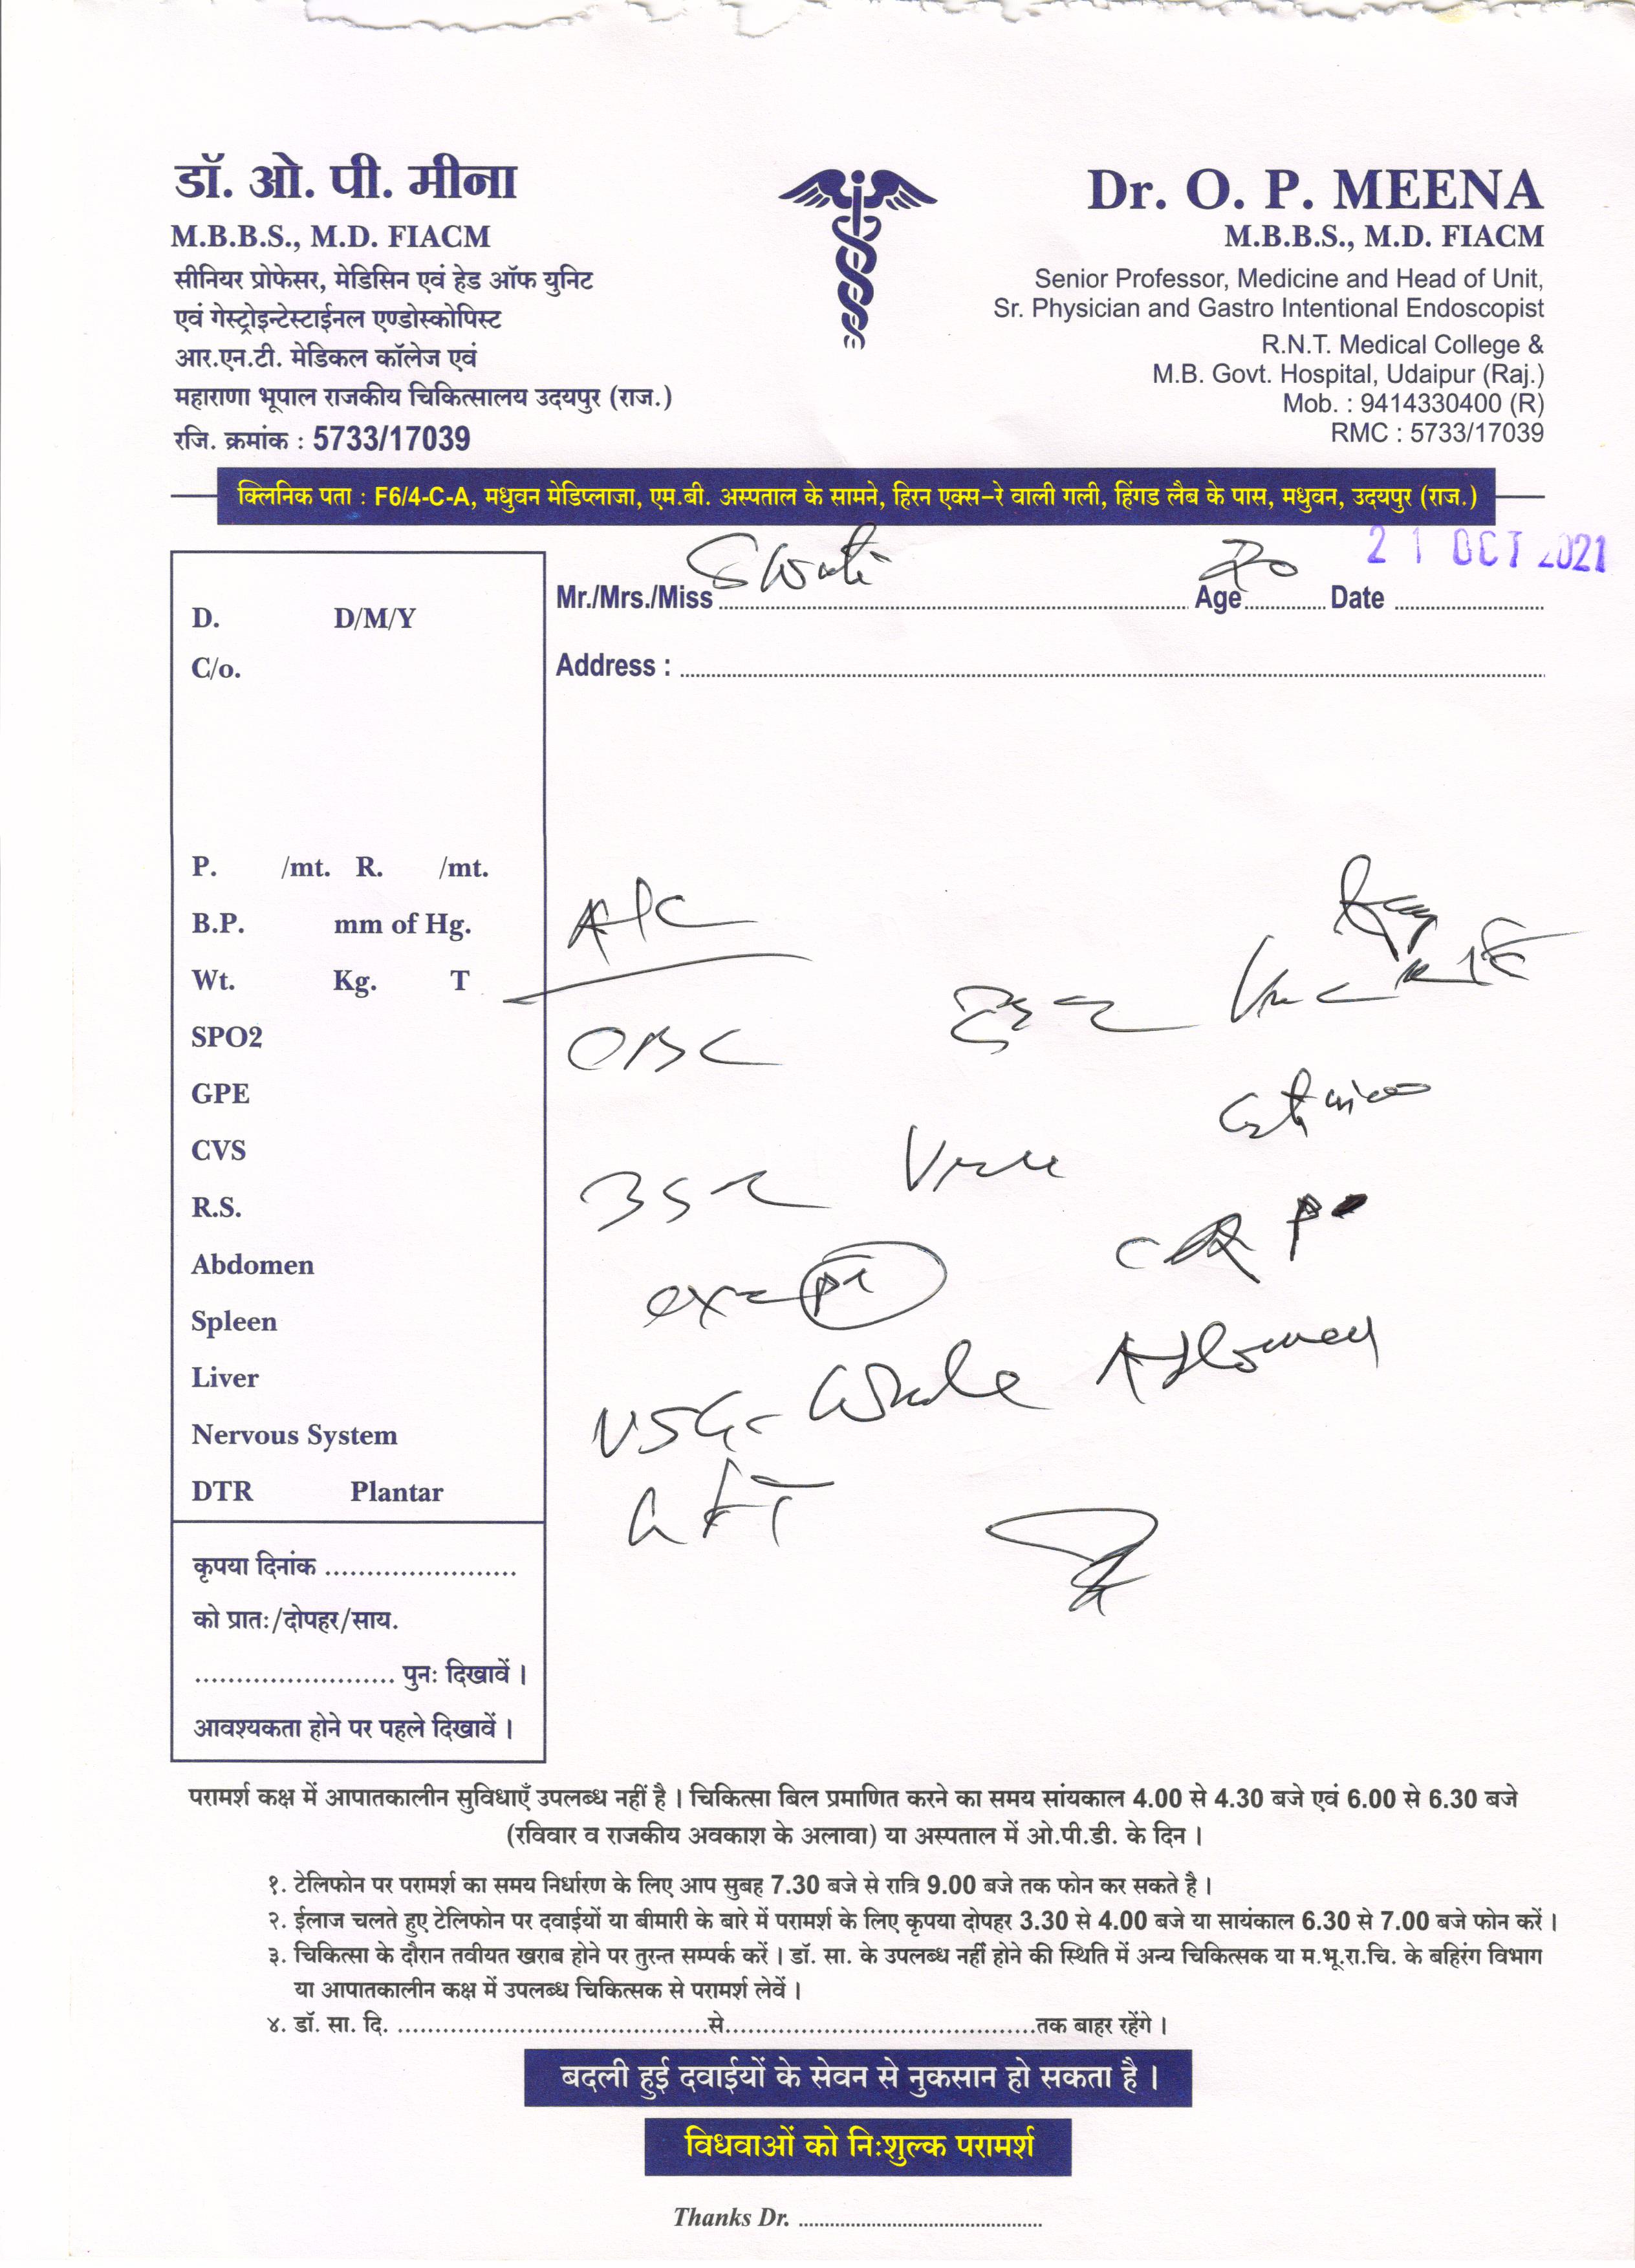 डॉ. ओ. पी. मीना
M.B.B.S., M.D. FIACM
सीनियर प्रोफेसर, मेडिसिन एवं हेड ऑफ युनिट
एवं गेस्ट्रोइन्टेस्टाईनल एण्डोस्कोपिस्ट
आर.एन.टी. मेडिकल कॉलेज एवं
महाराणा भूपाल राजकीय चिकित्सालय उदयपुर (राज.)
रजि. क्रमांक : 5733/17039
Dr. O. P. MEENA
M.B.B.S., M.D. FIACM
Senior Professor, Medicine and Head of Unit,
Sr. Physician and Gastro Intentional Endoscopist
R.N.T. Medical College &
M.B. Govt. Hospital, Udaipur (Raj.)
Mob. : 9414330400 (R)
RMC : 5733/17039
क्लिनिक पता : F6/4-C-A, मधुवन मेडिप्लाजा, एम.बी. अस्पताल के सामने, हिरन एक्स-रे वाली गली, हिंगड लैब के पास, मधुवन, उदयपुर (राज.)
Mr./Mrs./Miss Swati Age Date 21 OCT 2021
Address :
D. D/M/Y
C/o.
P. /mt. R. /mt.
B.P. mm of Hg.
Wt. Kg. T
SPO2
GPE
CVS
R.S.
Abdomen
Spleen
Liver
Nervous System
DTR Plantar
कृपया दिनांक
को प्रातः/दोपहर/साय.
पुनः दिखावें।
आवश्यकता होने पर पहले दिखावें।
CRP
USG- Whole Abdomen
परामर्श कक्ष में आपातकालीन सुविधाएँ उपलब्ध नहीं है। चिकित्सा बिल प्रमाणित करने का समय सांयकाल 4.00 से 4.30 बजे एवं 6.00 से 6.30 बजे
(रविवार व राजकीय अवकाश के अलावा) या अस्पताल में ओ.पी.डी. के दिन।
१. टेलिफोन पर परामर्श का समय निर्धारण के लिए आप सुबह 7.30 बजे से रात्रि 9.00 बजे तक फोन कर सकते है।
२. ईलाज चलते हुए टेलिफोन पर दवाईयों या बीमारी के बारे में परामर्श के लिए कृपया दोपहर 3.30 से 4.00 बजे या सायंकाल 6.30 से 7.00 बजे फोन करें।
३. चिकित्सा के दौरान तवीयत खराब होने पर तुरन्त सम्पर्क करें। डॉ. सा. के उपलब्ध नहीं होने की स्थिति में अन्य चिकित्सक या म.भू.रा.चि. के बहिरंग विभाग
या आपातकालीन कक्ष में उपलब्ध चिकित्सक से परामर्श लेवें।
४. डॉ. सा. दि. से तक बाहर रहेंगे।
बदली हुई दवाईयों के सेवन से नुकसान हो सकता है।
विधवाओं को निःशुल्क परामर्श
Thanks Dr.